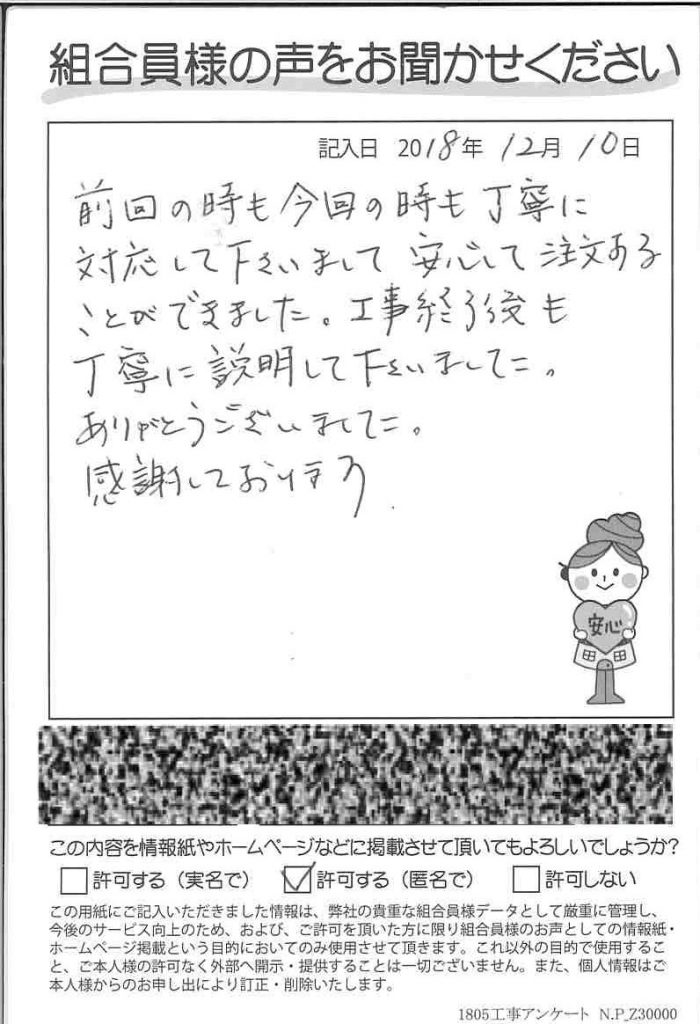 組合員様の声をお聞かせください
記入日 2018年 12月 10日
前回の時も今回の時も丁寧に
対応して下さいまして 安心して注文ある
ことができました。工事終了後も
丁寧に説明して下さいました。
ありがとうございました。
感謝しております
安心
この内容を情報紙やホームページなどに掲載させて頂いてもよろしいでしょうか?
許可する（実名で） 許可する（匿名で） 許可しない
この用紙にご記入いただきました情報は、弊社の貴重な組合員様データとして厳重に管理し、
今後のサービス向上のため、および、ご許可を頂いた方に限り組合員様のお声としての情報紙・
ホームページ掲載という目的においてのみ使用させて頂きます。これ以外の目的で使用するこ
と、ご本人様の許可なく外部へ開示・提供することは一切ございません。また、個人情報はご
本人様からのお申し出により訂正・削除いたします。
1805工事アンケート N.P_Z30000